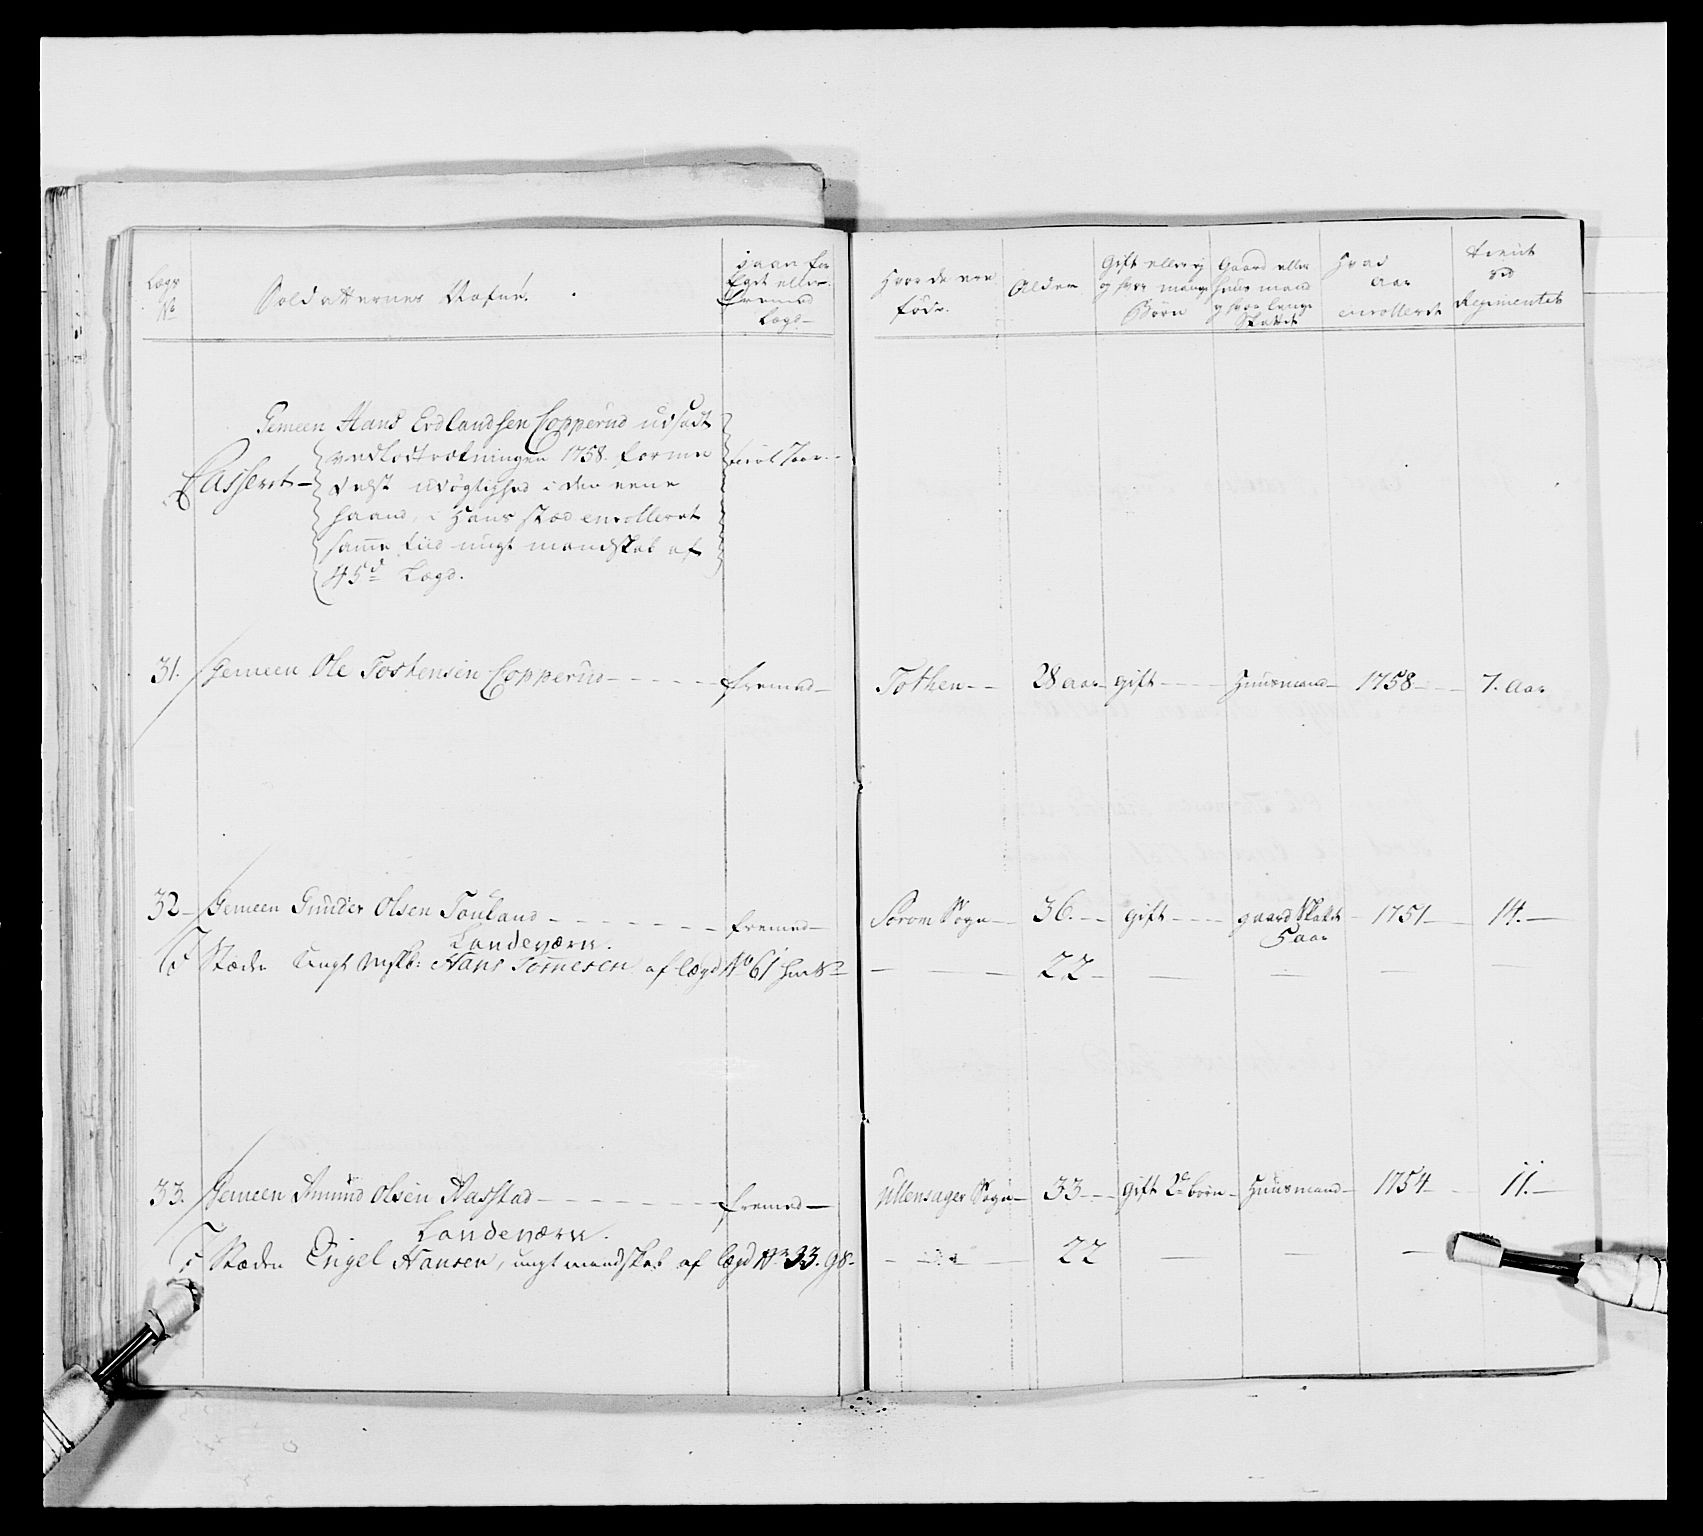 Lægs
No
Soldatternes Nafne.
Staar for
Eget eller
fremed
Lægd
Hvor de ere
føde.
Alder
Gift eller ej
og hvor mange
Børn
Gaard eller
Huus mand
og hvor længe
Skattet
Hvad
Aar
enrolleret
Tient
ved
Regimentet
Gemeen Hans Erdlandsen Copperud udsadt
ved Lodtrækningen 1758 forme
Casseret
delst udögtighed i den eene
haand, i Hans stæd enrolleret
samme tiid ungt mandskab af
45d Lægd.
31. Gemeen Ole Tostensen Copperud - - - - - fremed - Tothen - - 28 aar - gift - - - Huusmand - 1758 - - 7. Aar
32 - Gemeen Gunder Olsen Touland - - - - - - fremed - Sorom Sogn - 36. - - gift - - - gaard Skatt - 1751 - 14. -
5 aar
Landeværn.
Stæden Ungt Mskb: Hans Tommesen af lægd No 61 - - - 22 - - - - -
33. Gemeen Amund Olsen Hasstad - - - - - - fremed - Ullensager Sogn - 33 - - gift 2 børn - Huusmand - 1754 - - 11. -
Landeværn.
Stæden Engel Hansen, ungt mandskab af lægd No 33. 98. - - - 22 - - -